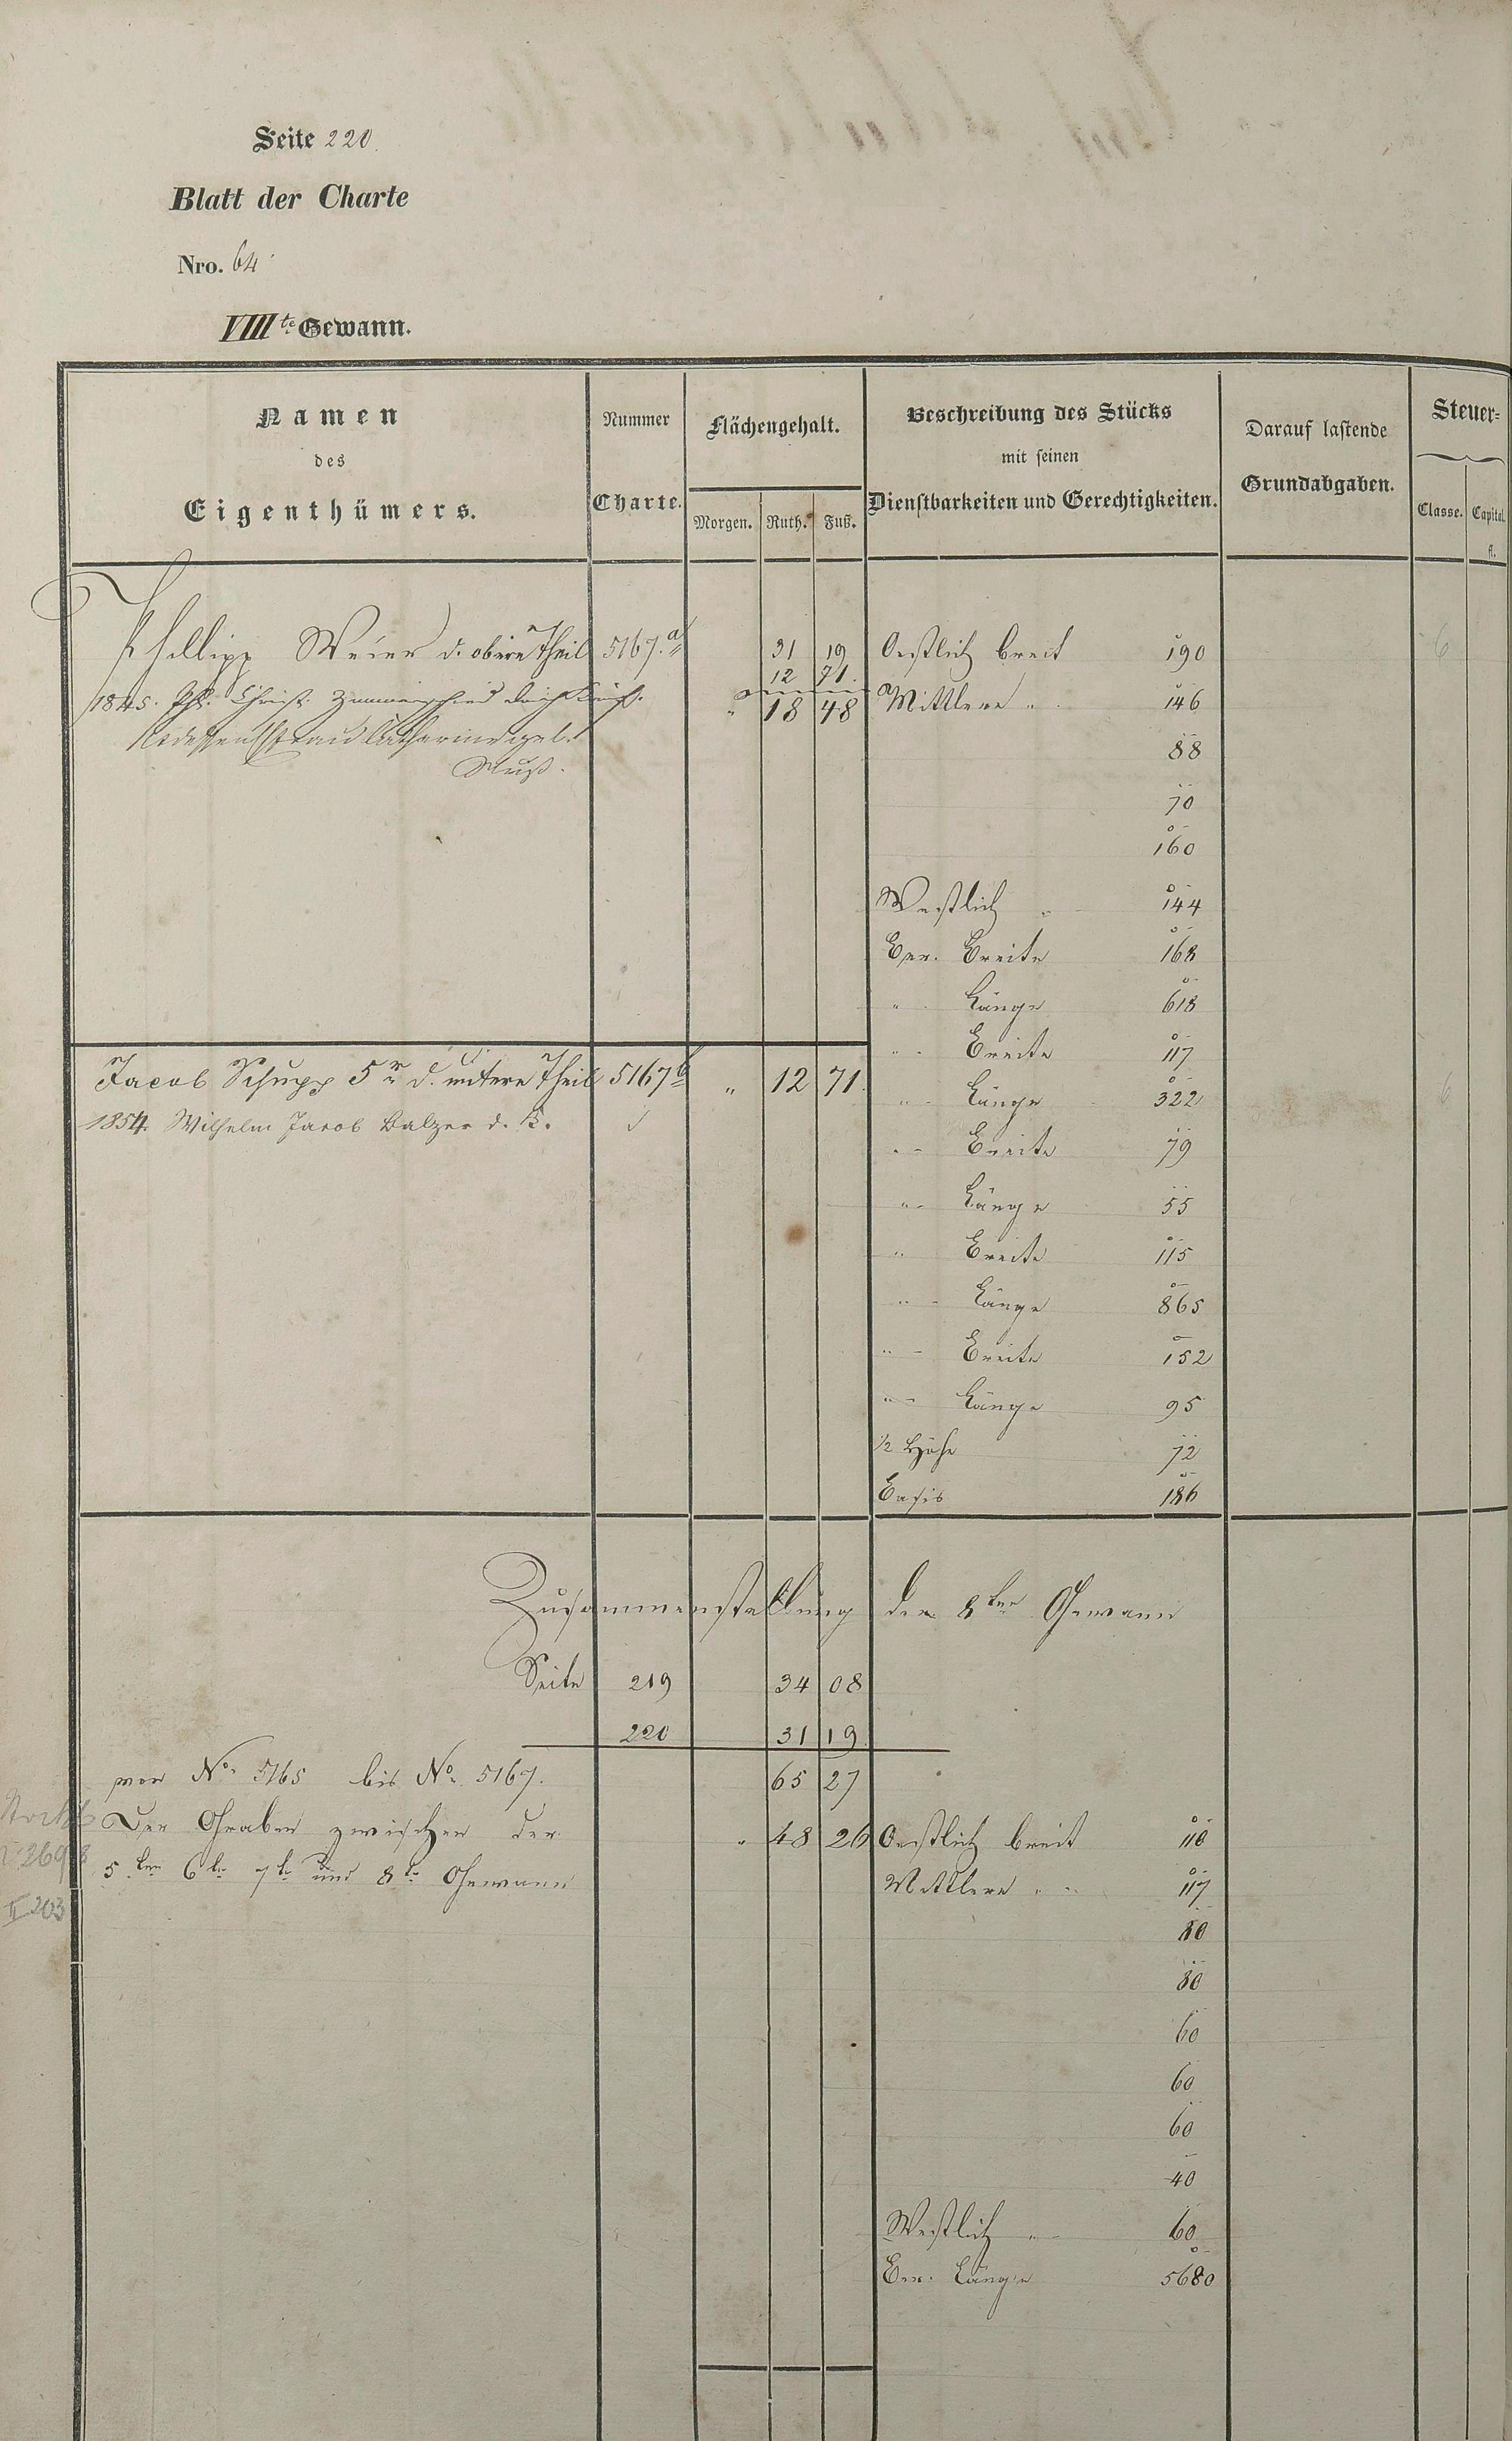 Seite 220
Blatt der Charte
Nro. 64
VIIIte Gewann.
Namen
des
Eigenthümers.
Nummer
Charte.
Flächengehalt.
Morgen. Ruth. Fuß.
Beschreibung des Stücks
mit seinen
Dienstbarkeiten und Gerechtigkeiten.
Darauf lastende
Grundabgaben.
Steuer-
Classe. Capital.
fl.
Phillipp Weier d. obere Theil 5167.a 31 19 Oestlich breit 190 6
12 71
1845. Ph. Christ. Zimmerschied durch Kauf. " 18 48 Mittlere " 146
Catharine geb. 88
70
160
Westlich " 144
Ber. Breite 168
" Länge 618
" Breite 117
Jacob Schupp 5r d. untere Theil 5167b " 12 71 " Länge 322 6
1854. Wilhelm Jacob Balzer d. K.
" Breite 79
" Länge 55
" Breite 115
" Länge 865
" Breite 152
" Länge 95
1/2 Höhe 72
Basis 186
Zusammenstellung der 8ten Gewann
Seite 219 34 08
220 31 19
von No. 5165 bis No. 5167. 65 27
Der Graben zwischen der " 48 26 Oestlich breit 110
5ten 6te 7te und 8te Gewann Mittlere " 117
2698
II 203
80
80
60
60
60
40
Westlich " 60
Ber. Länge 5680